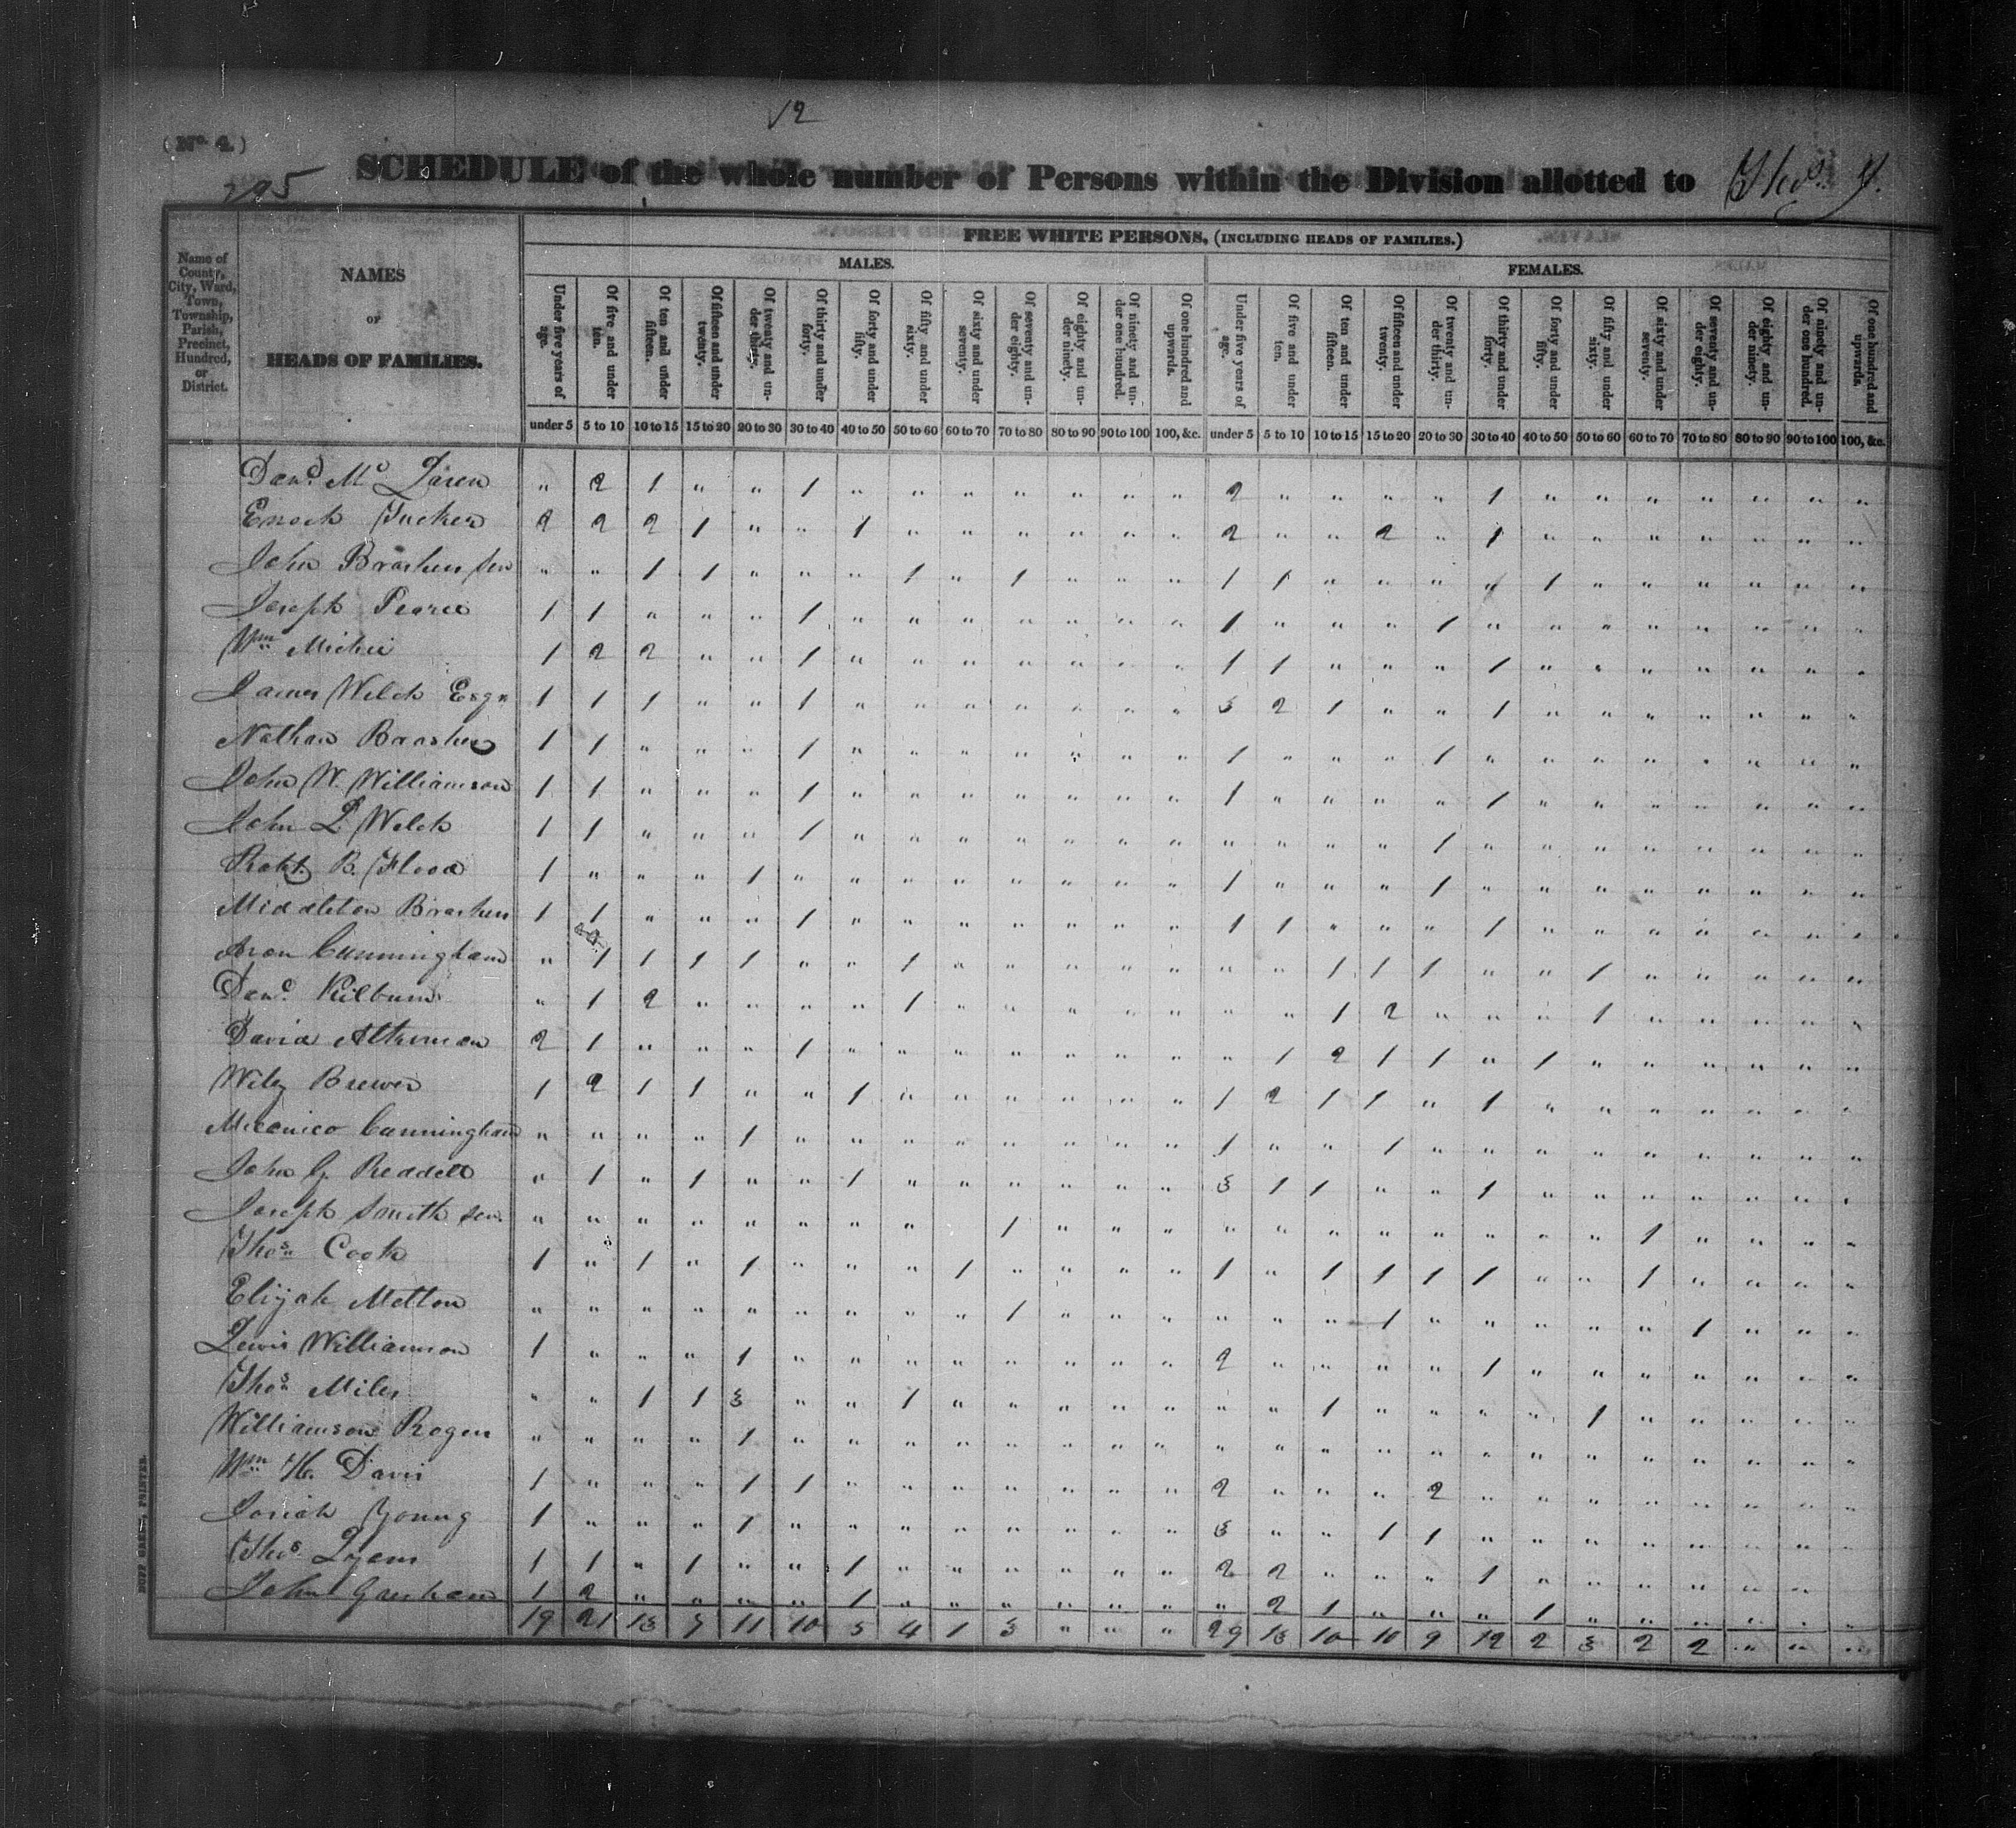 12
(No. 4.)
295
SCHEDULE of the whole number of Persons within the Division allotted to Thos. Y.
FREE WHITE PERSONS, (INCLUDING HEADS OF FAMILIES.)
MALES. FEMALES.
Name of County, City, Ward, Town, Township, Parish, Precinct, Hundred, or District.
NAMES
OF
HEADS OF FAMILIES.
Under five years of age. Of five and under ten. Of ten and under fifteen. Of fifteen and under twenty. Of twenty and under thirty. Of thirty and under forty. Of forty and under fifty. Of fifty and under sixty. Of sixty and under seventy. Of seventy and under eighty. Of eighty and under ninety. Of ninety and under one hundred. Of one hundred and upwards. Under five years of age. Of five and under ten. Of ten and under fifteen. Of fifteen and under twenty. Of twenty and under thirty. Of thirty and under forty. Of forty and under fifty. Of fifty and under sixty. Of sixty and under seventy. Of seventy and under eighty. Of eighty and under ninety. Of ninety and under one hundred. Of one hundred and upwards.
under 5 5 to 10 10 to 15 15 to 20 20 to 30 30 to 40 40 to 50 50 to 60 60 to 70 70 to 80 80 to 90 90 to 100 100, &c. under 5 5 to 10 10 to 15 15 to 20 20 to 30 30 to 40 40 to 50 50 to 60 60 to 70 70 to 80 80 to 90 90 to 100 100, &c.
Danl. Mc Laren " 2 1 " " 1 " " " " " " " 2 " " " " 1 " " " " " " "
Enoch Tucker 2 2 2 1 " " 1 " " " " " " 2 " " 2 " 1 " " " " " " "
John Brasher Sen " " 1 1 " " " 1 " 1 " " " 1 1 " " " " 1 " " " " " "
Joseph Pearce 1 1 " " " 1 " " " " " " " 1 " " " 1 " " " " " " " "
Wm Michie 1 2 2 " " 1 " " " " " " " 1 1 " " " 1 " " " " " " "
James Welch Esqr 1 1 1 " " 1 " " " " " " " 3 2 1 " " 1 " " " " " " "
Nathan Brasher 1 1 " " " 1 " " " " " " " 1 " " " 1 " " " " " " " "
John W. Williamson 1 1 " " " 1 " " " " " " " 1 " " " " 1 " " " " " " "
John L Welch 1 1 " " " 1 " " " " " " " " " " " 1 " " " " " " " "
Robt. B. Flood 1 " " " 1 " " " " " " " " 1 " " " 1 " " " " " " " "
Middleton Brasher 1 1 " " " 1 " " " " " " " 1 1 " " " 1 " " " " " " "
Aron Cunningham " 1 1 1 1 " " 1 " " " " " " " 1 1 1 " " 1 " " " " "
Danl. Kilburn " 1 2 " " " " 1 " " " " " " " 1 2 " " " 1 " " " " "
David Altmman 2 1 " " " 1 " " " " " " " " 1 2 1 1 " 1 " " " " " "
Wiley Brewer 1 2 1 1 " " 1 " " " " " " 1 2 1 1 " 1 " " " " " " "
Cunningham " " " " 1 " " " " " " " " 1 " " 1 " " " " " " " " "
John G Reddell " 1 " 1 " " 1 " " " " " " 3 1 1 " " 1 " " " " " " "
Joseph Smith Sen. " " " " " " " " " 1 " " " " " " " " " " " 1 " " " "
Thos. Cook 1 " 1 " 1 " " " 1 " " " " 1 " 1 1 1 1 " " 1 " " " "
Elijah Melton " " " " " " " " " 1 " " " " " " 1 " " " " " 1 " " "
Lewis Williamson 1 " " " 1 " " " " " " " " 2 " " " " 1 " " " " " " "
Thos. Miles " " 1 1 3 " " 1 " " " " " " " 1 " " " " 1 " " " " "
Williamson Roger " " " " 1 " " " " " " " " " " " " " " " " " " " " "
Wm H. Davis 1 " " " 1 1 " " " " " " " 2 " " " 2 " " " " " " " "
Josiah Young 1 " " " 1 " " " " " " " " 3 " " 1 1 " " " " " " " "
Thos. Lyem 1 1 " 1 " " 1 " " " " " " 2 2 " " " 1 " " " " " "
John Gresham 1 2 " " " " 1 " " " " " " " 2 1 " " " 1 " " " " " "
19 21 13 7 11 10 5 4 1 3 " " " 29 13 10 10 9 12 2 3 2 2 " " "
DUFF GREEN, PRINTER.